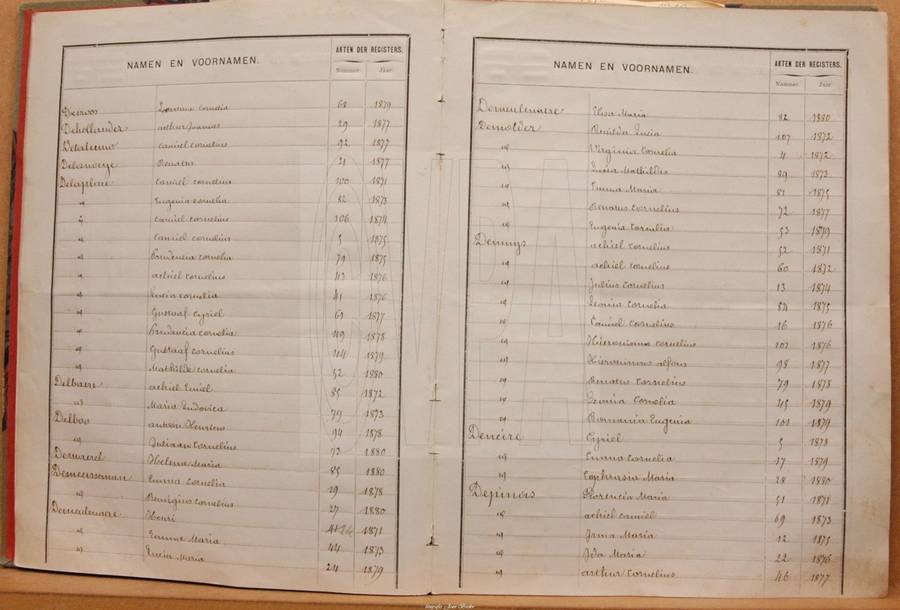 NAMEN EN VOORNAMEN. AKTEN DER REGISTERS.
Nummer. Jaar.
Cornelia 68 1879
Dehollander arthur Joannes 29 1877
camiel cornelius 92 1877
Renatus 21 1877
Delaplace camiel cornelius 100 1871
" Eugenia cornelia 82 1873
" camiel cornelius 106 1874
" camiel cornelius 5 1875
" Prudencia cornelia 79 1875
" achiel cornelius 43 1876
" Lucia cornelia 41 1876
" Gustaaf Cyriel 61 1877
" Prudencia cornelia 49 1878
" Gustaaf cornelius 44 1879
" Mathilde cornelia 52 1880
Delbaere achiel Emiel 85 1872
" Maria Ludovica 79 1873
Delboo Henricus 94 1878
" Juliaan Cornelius 73 1880
Helena Maria 85 1880
Demeersseman Emma Cornelia 29 1878
" Benignus cornelius 27 1880
Demeulenaere Henri 1871
" Emma Maria 44 1873
" Lucia Maria 24 1879
NAMEN EN VOORNAMEN. AKTEN DER REGISTERS.
Nummer. Jaar.
Demeulenaere Elisa Maria 82 1880
Demolder Renilda Lucia 107 1872
" Virginia Cornelia 4 1872
" Lucia Mathildis 89 1873
" Emma Maria 81 1875
" Renatus Cornelius 72 1877
" Eugenia Cornelia 53 1879
Dennys achiel cornelius 52 1871
" achiel cornelius 60 1872
" Julius Cornelius 13 1874
" Leonia Cornelia 84 1875
" Camiel Cornelius 16 1876
" Hieronimus cornelius 102 1876
" Hieronimus alfons 98 1877
" Renatus Cornelius 79 1878
" Leonia Cornelia 45 1879
" Romania Eugenia 101 1879
Deneire Cyriel 5 1878
" Emma Cornelia 17 1879
" Euphrasia Maria 28 1880
Depinois Florencia Maria 51 1871
" achiel camiel 69 1873
" Irma Maria 12 1875
" Ida Maria 22 1876
" arthur Cornelius 46 1877